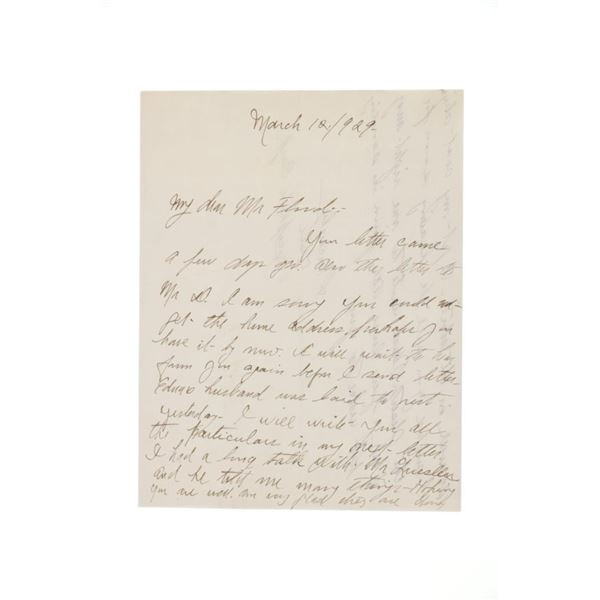 March 12/1929-
My dear Mr Flood:-
Your letter came
a few days go. also the letter to
Mr D. I am sorry you could not
get the home address, perhaps you
have it by now. I will wait to hear
from you again before I send letter
Edna's husband was laid to rest
yesterday- I will write you all
the particulars in my next letter
I had a long talk with Mr
and he told me many things- Hoping
you are well. am very glad they are